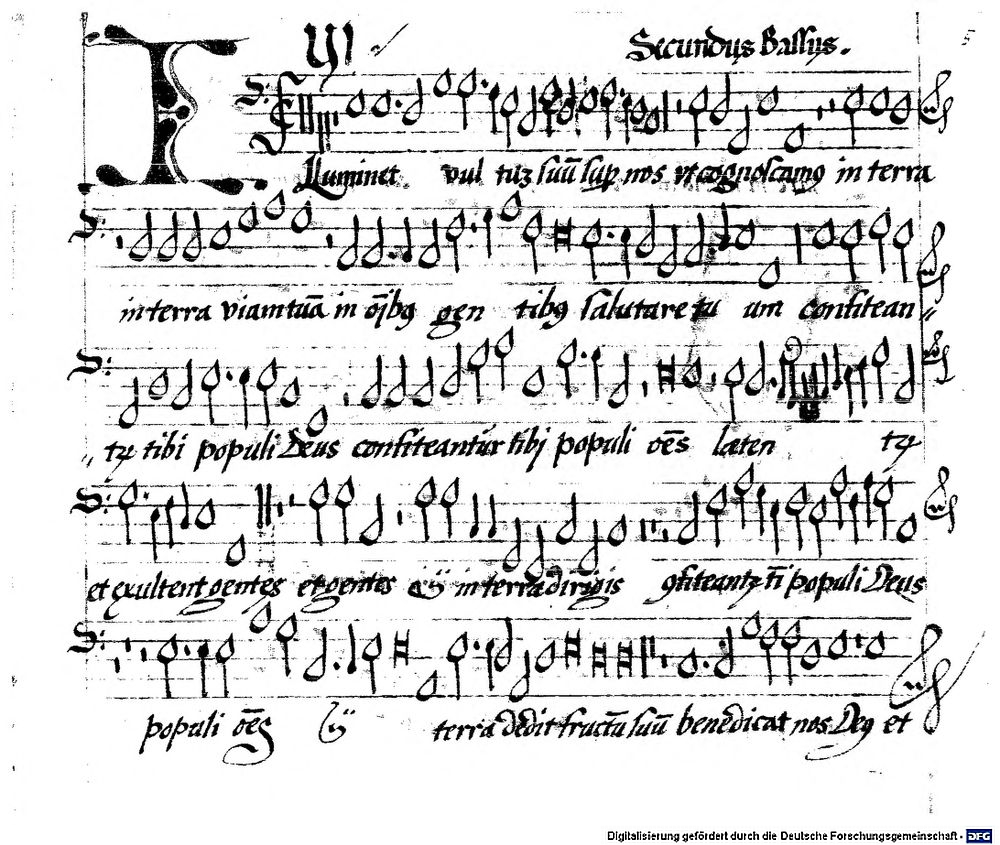 VI
Secundus Bassus.
5
Illuminet vul tuz suū sup nos vt cognoscamq in terra
in terra viam tuā in oībq gen tibq salutare tu um confitean
tz tibi populi Deus confiteantur tibj populi oēs læten tz
et exultent gentes et gentes ij in terra dirigis gfiteantz tī populi Deus
populi oēs ij terra dedit fructū suū benedicat nos Deq et
Digitalisierung gefördert durch die Deutsche Forschungsgemeinschaft - DFG